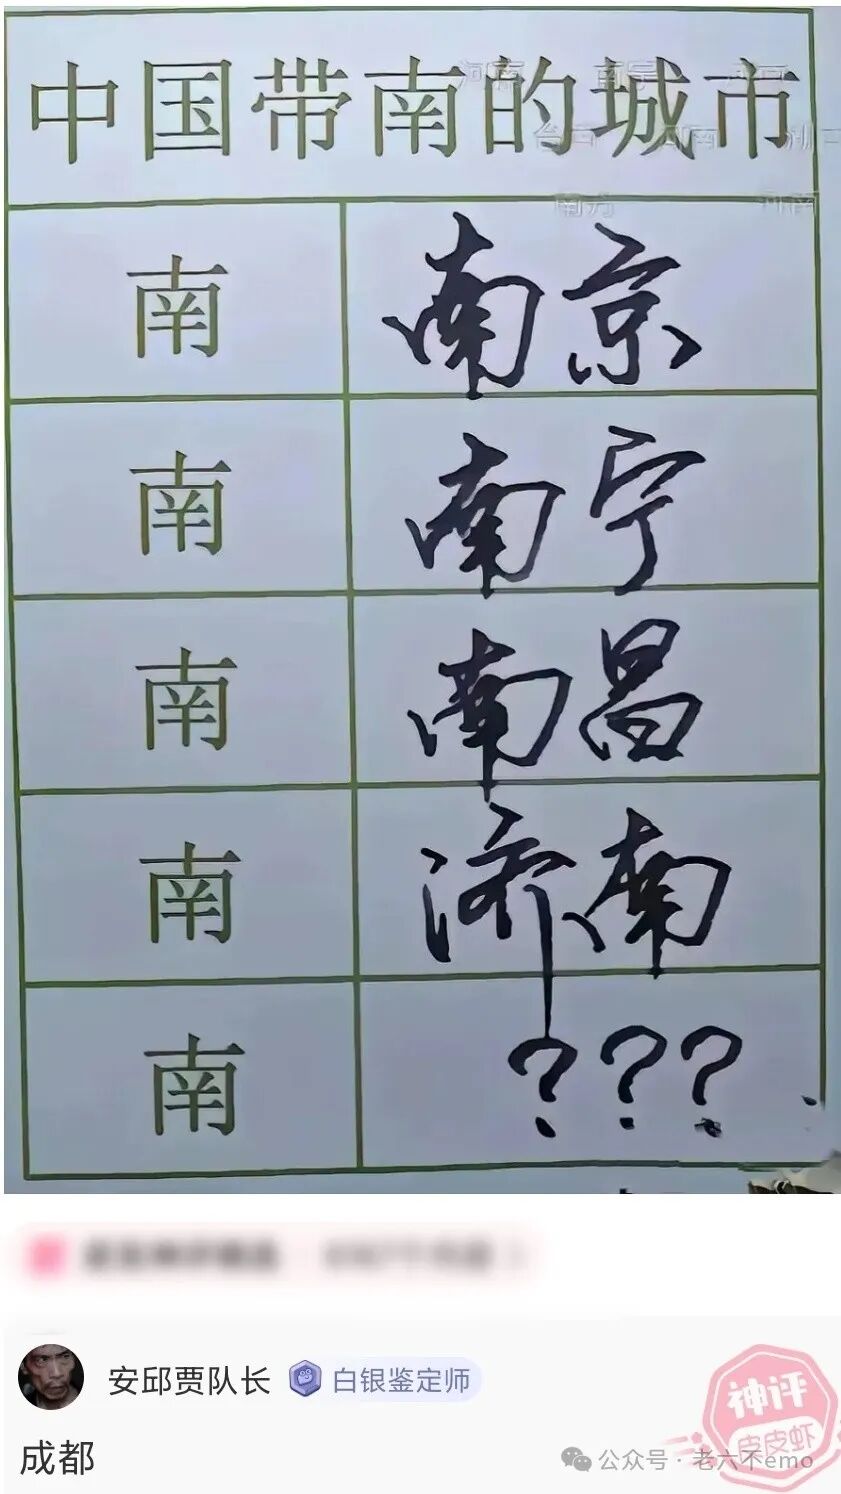 中国带南的城市
南 南京
南 南宁
南 南昌
南 济南
南 ???
安邱贾队长 白银鉴定师
成都
神评
皮皮虾
公众号·老六不emo